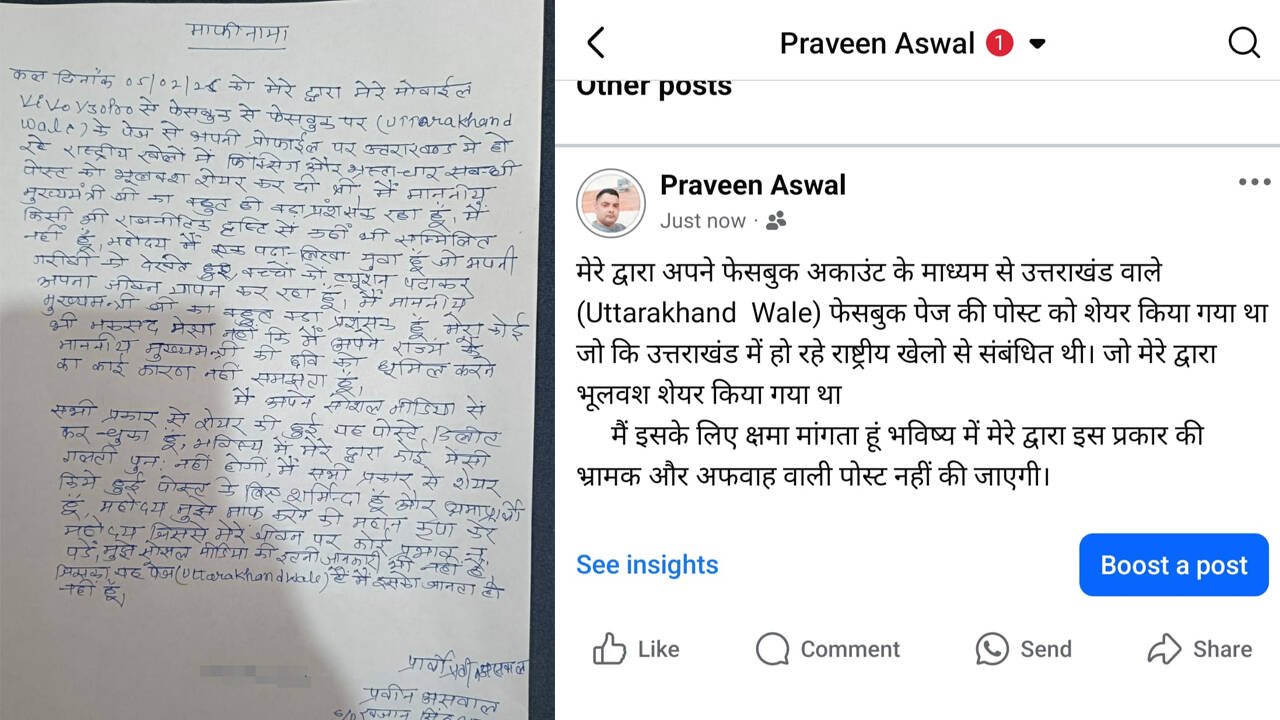 माफीनामा
कल दिनांक 05/02/25 को मेरे द्वारा मेरे मोबाईल
Vivo Y30Pro से फेसबुक से फेसबुक पर (Uttarakhand
Wale) के पेज से अपनी प्रोफाईल पर उत्तराखण्ड में हो
रहे राष्ट्रीय खेलों में फिक्सिंग और भ्रष्टाचार सबन्धी
पोस्ट को भूलवश शेयर कर दी थी, मैं माननीय
मुख्यमंत्री जी का बहुत ही बडा प्रशंसक रहा हूं, मैं
किसी भी राजनीतिक दृष्टि से कहीं भी सम्मिलित
नहीं हूँ, महोदय मैं एक पढा-लिखा युवा हूँ जो अपनी
गरीबी को देखते हुई बच्चों को ट्यूशन पढाकर
अपना जीवन यापन कर रहा हूँ, मैं माननीय
मुख्यमंत्री जी का बहुत बडा प्रशंसक हूँ मेरा कोई
भी मकसद ऐसा नहीं कि मैं अपने राज्य के
माननीय मुख्यमंत्री की छवि को धूमिल करने
का कोई कारण नहीं समझता हूँ,
मैं अपने सोशल मीडिया से
सभी प्रकार से शेयर की हुई यह पोस्ट डिलीट
कर चुका हूँ, भविष्य में मेरे द्वारा कोई ऐसी
गलती पुन: नहीं होगी, मैं सभी प्रकार से शेयर
किये हुई पोस्ट के लिए शर्मिन्दा हूँ और क्षमाप्रार्थी
हूँ, महोदय मुझे माफ करने की महान कृपा करें
महोदय जिससे मेरे जीवन पर कोई प्रभाव न
पडे, मुझे सोसल मीडिया की इतनी जानकारी भी नहीं है,
जिसका यह पेज (Uttarakhandwale) है मैं इसको जानता ही
नहीं हूँ,
प्रवीन असवाल
S/O
Praveen Aswal 1
Other posts
Praveen Aswal
Just now ·
मेरे द्वारा अपने फेसबुक अकाउंट के माध्यम से उत्तराखंड वाले
(Uttarakhand Wale) फेसबुक पेज की पोस्ट को शेयर किया गया था
जो कि उत्तराखंड में हो रहे राष्ट्रीय खेलो से संबंधित थी। जो मेरे द्वारा
भूलवश शेयर किया गया था
मैं इसके लिए क्षमा मांगता हूं भविष्य में मेरे द्वारा इस प्रकार की
भ्रामक और अफवाह वाली पोस्ट नहीं की जाएगी।
See insights
Boost a post
Like Comment Send Share